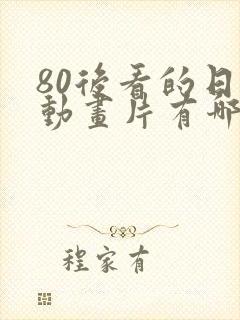 80後看的日
動畫片有哪
程家有